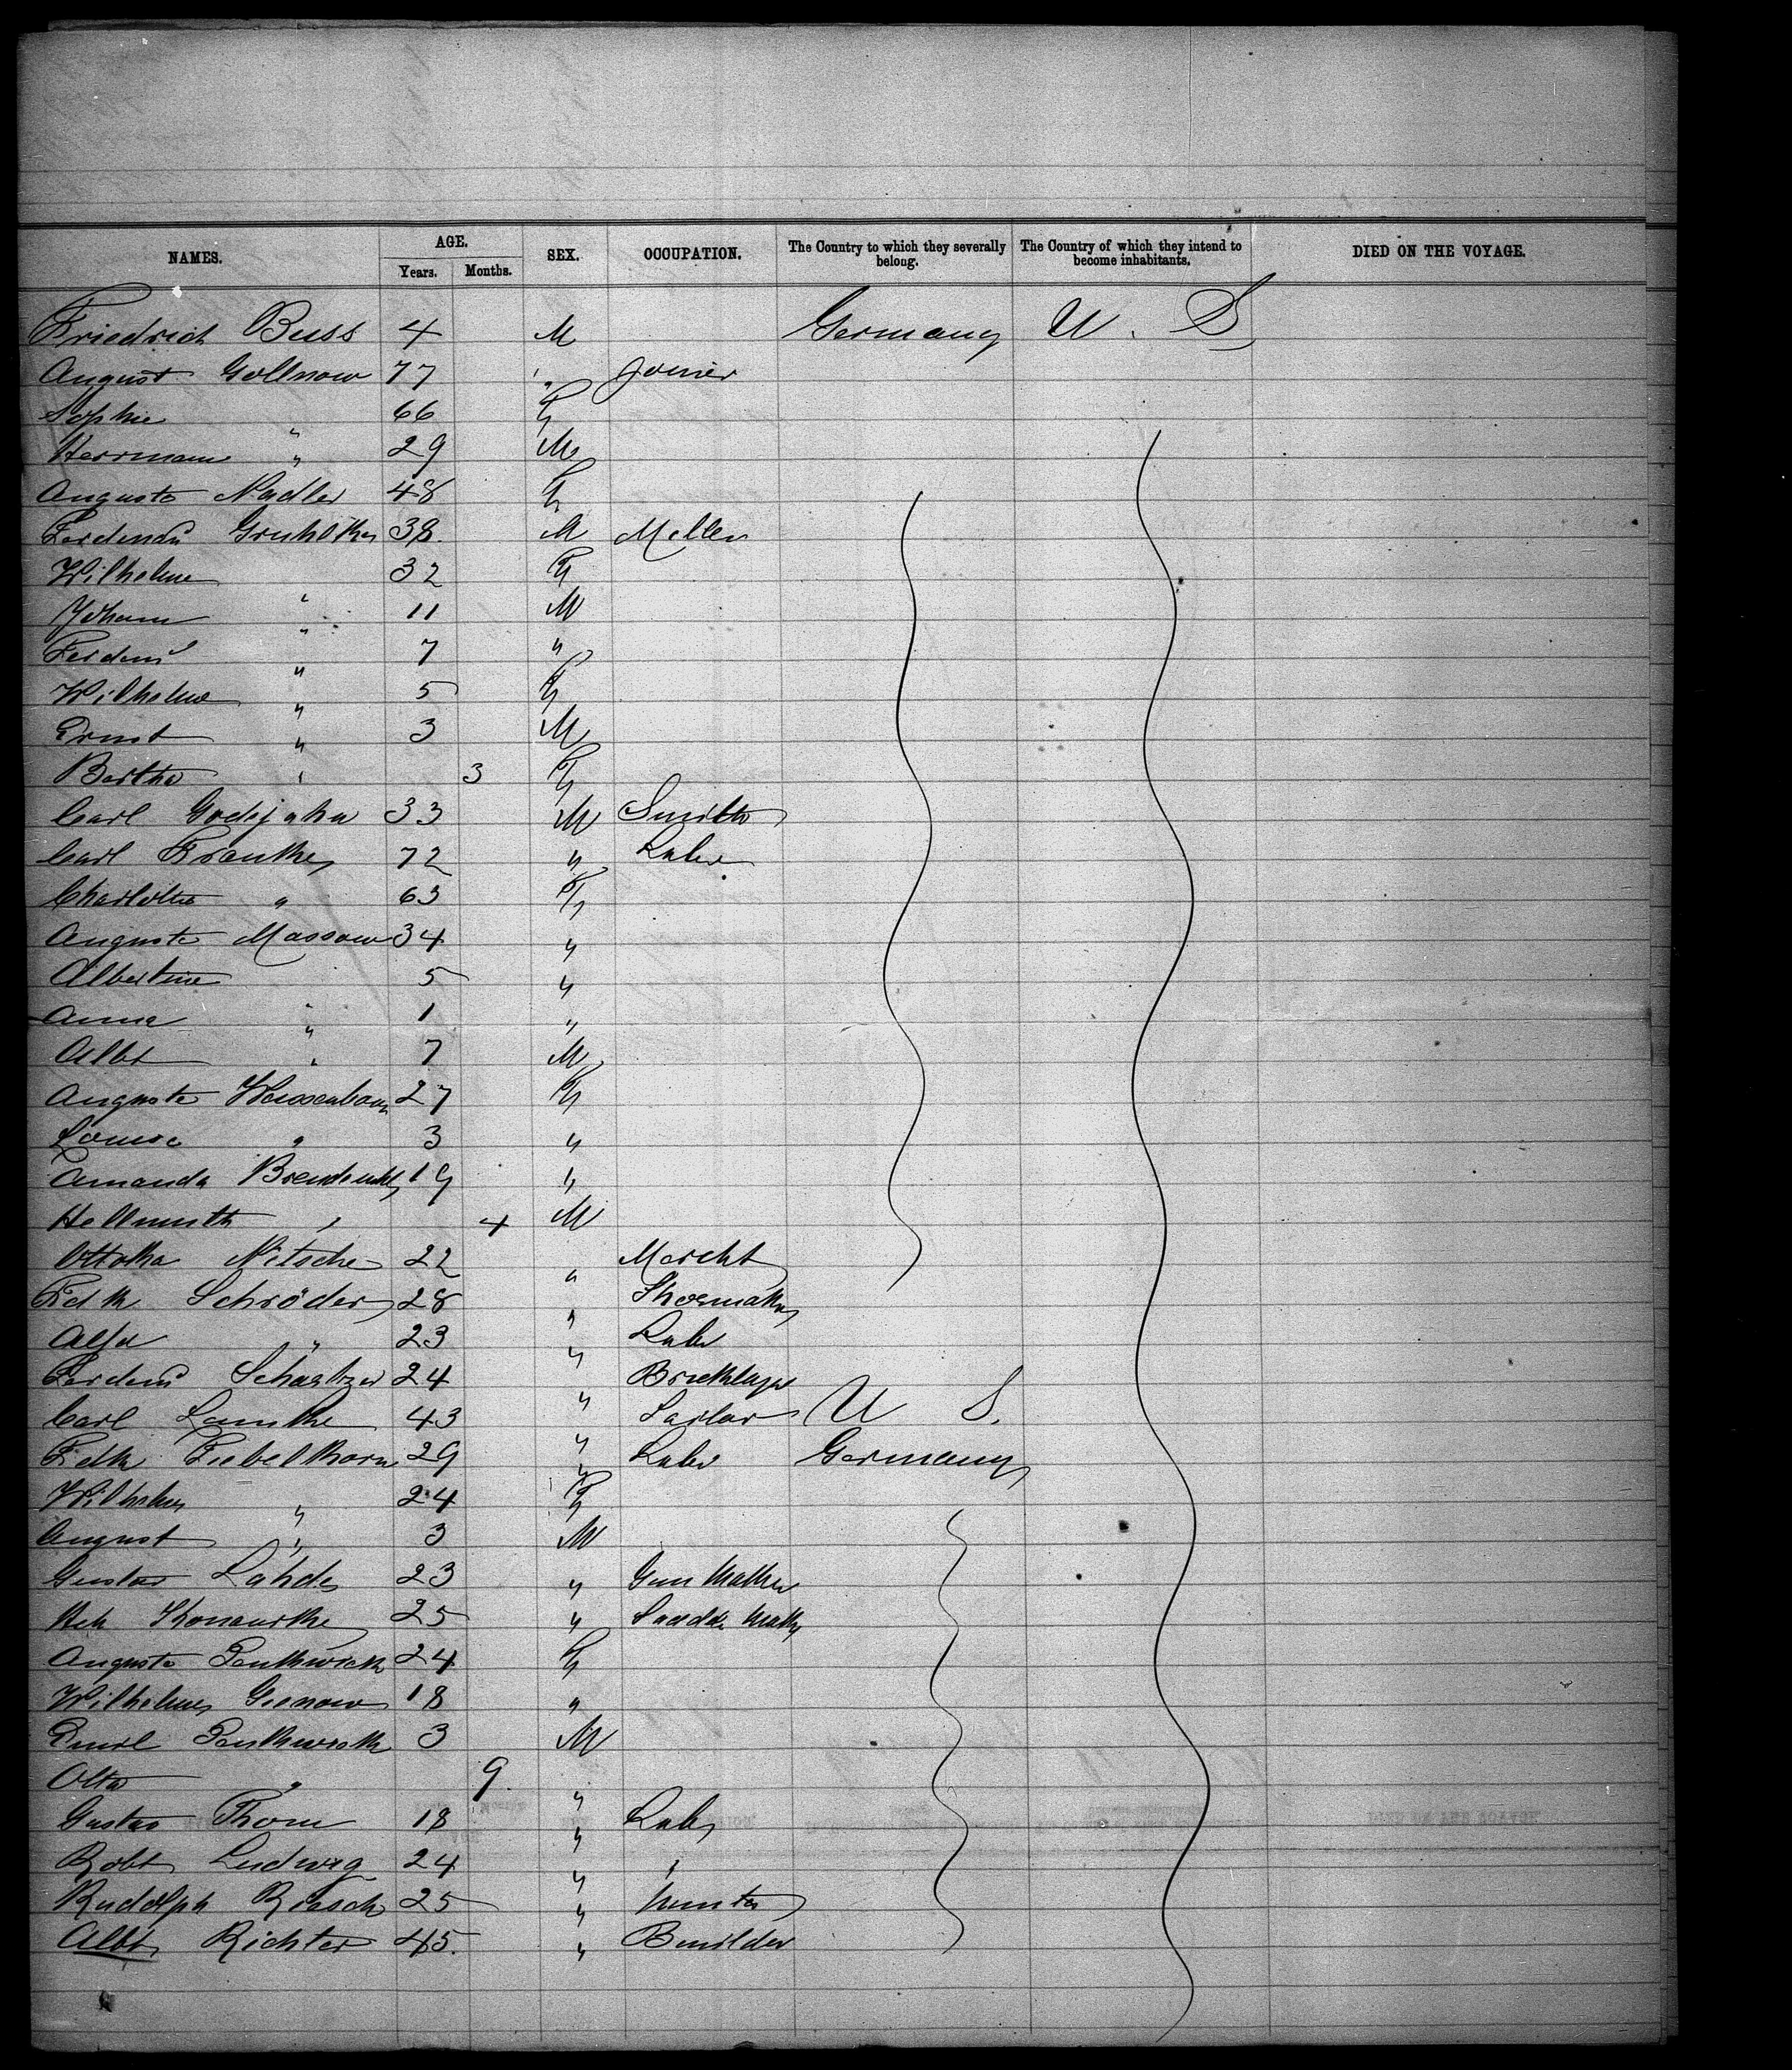 NAMES. AGE. Years. Months. SEX. OCCUPATION. The Country to which they severally belong. The Country of which they intend to become inhabitants. DIED ON THE VOYAGE.
Friedrich Buss 4 M Germany U. S
August Gollnow 77 " Joiner
Sophie " 66 F
Herrmann " 29 M
Auguste Nadler 48 F
38 M Miller
Wilhelme " 32 F
Johann " 11 M
Ferdend " 7 "
Wilhelme " 5 F
Ernst " 3 M
Bertha " 3 F
Carl Godejohn 33 M Smith
Carl Franke 72 " Labr
Charlotte " 63 F
Auguste Massow 34 "
Albertine " 5 "
Anna " 1 "
Albt " 7 M
Auguste 27 F
Louise " 3 "
Amanda 19 "
Hellmuth " 4 M
Nitsche 22 " Mercht
Fdk Schröder 28 " Shoemaker
" 23 " Labr
24 " Bricklayer
Carl Lemke 43 " Sailor U S.
Fdk Fiebelkorn 29 " Labr Germany
Wilhelm " 24 F
August " 3 M
Gustav Lähde 23 " Gun Maker
25 "
Auguste 24 F
Wilhelme Gienow 18 "
Emil 3 M
Otto " 9 "
Gustav Thom 18 " Labr
Robt Ludwig 24 " "
Rudolph Riesch 25 " hunter
Albt Richter 45 " Builder